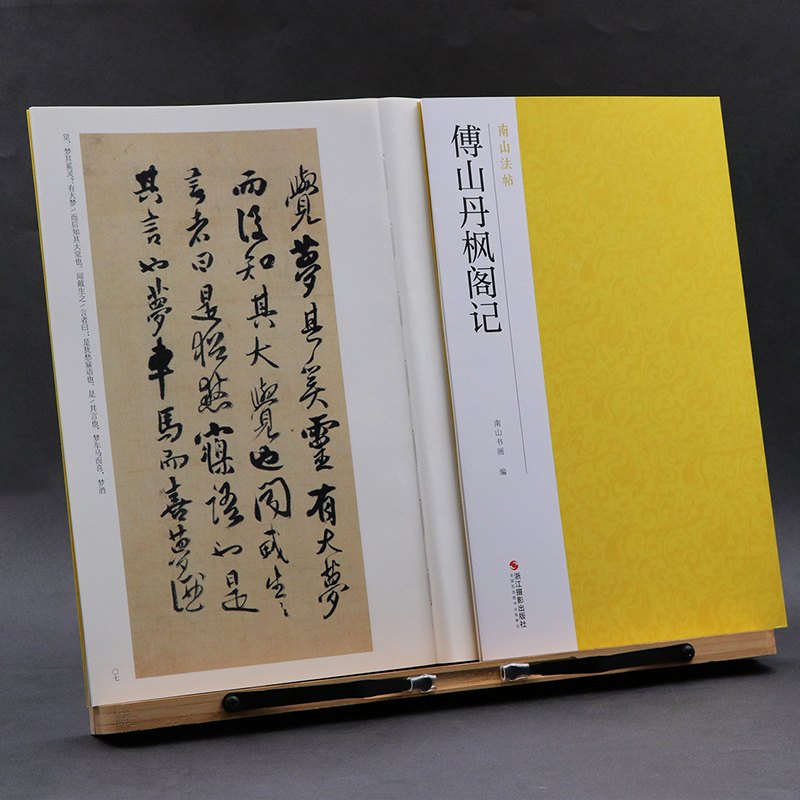 觉。梦其奚灵？有大梦，而后知其大觉也。闻戴生之言者曰：是犹愁寐语也。是其言也，梦车马而喜，梦酒
覺夢其奚靈有大夢
而後知其大覺也聞戴生之
言者曰是猶愁寐語也是
其言也夢車馬而喜夢酒
〇七
南山法帖
傅山丹枫阁记
南山书画 编
浙江摄影出版社